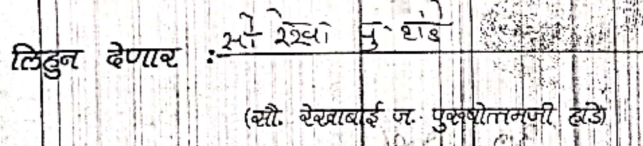 लिहुन देणार : सौ रेखा पु हांडे
(सौ. रेखाबाई ज. पुरूषोत्तमजी हांडे)